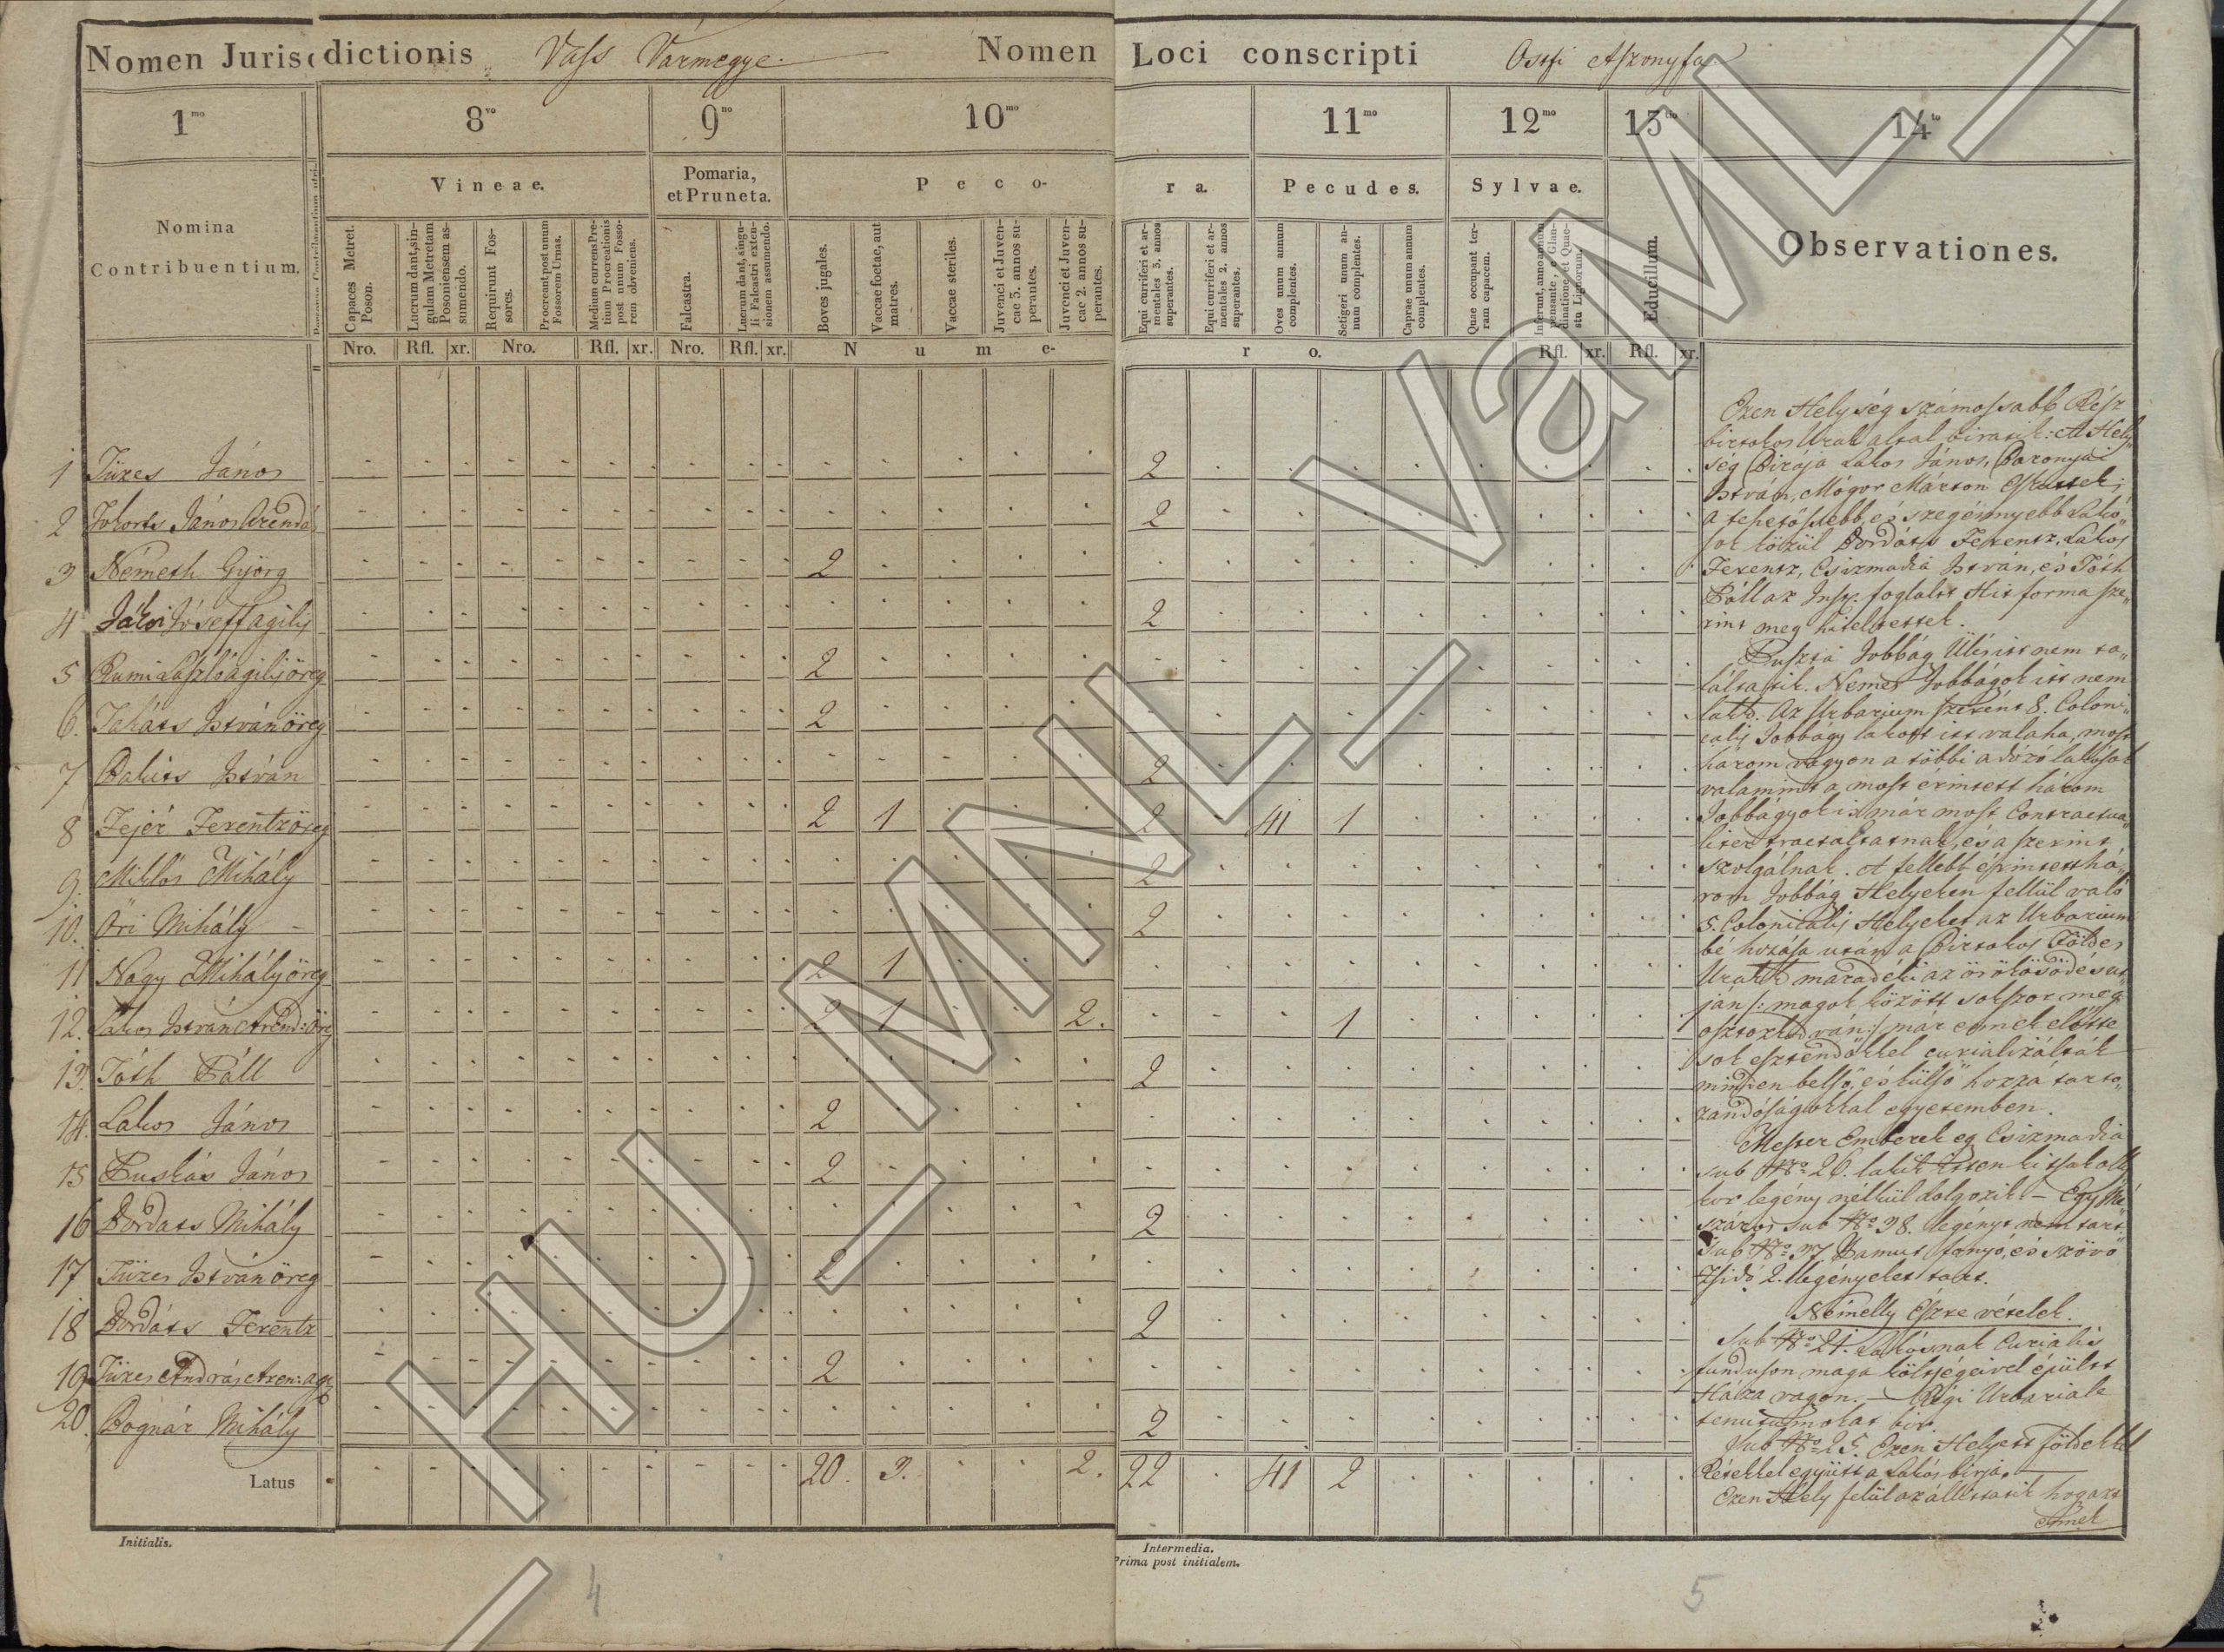 Nomen Jurisdictionis Vass Vármegye. Nomen Loci conscripti Ostfi Aszonyfa
1mo 8vo 9no 10mo 11mo 12mo 13tio 14to
Nomina Contribuentium.
Vineae.
Pomaria, et Pruneta.
Peco-ra.
Pecudes.
Sylvae.
Educillum.
Observationes.
Capaces Metret. Poson.
Lucrum dant, singulam Metretam Posoniensem assumendo.
Requirunt Fossores.
Procreant post unum Fossorem Urnas.
Medium currens Pretium Procreationis post unum Fossorem obveniens.
Falcastra.
Lucrum dant, singuli Falcastri extensionem assumendo.
Boves jugales.
Vaccae foetae, aut matres.
Vaccae steriles.
Juvenci et Juvencae 3. annos superantes.
Juvenci et Juvencae 2. annos superantes.
Equi curriferi et armentales 3. annos superantes.
Equi curriferi et armentales 2. annos superantes.
Oves unum annum complentes.
Setigeri unum annum complentes.
Caprae unum annum complentes.
Quae occupant terram capacem.
Nro. Rfl. xr. Nro. Rfl. xr. Nro. Rfl. xr. Nume-ro. Rfl. xr. Rfl. xr.
1 Tüzes János 2
2 János Arendás 2
3 Németh Györg 2
4 Jákoi Joseff agilis 2
5 Rumi László agilis öreg 2
6. Takáts István öreg 2
7 Bakits István 2
8 Fejér Ferentz öreg 2 1 2 41 1
9. Miklós Mihály 2
10. Öri Mihály 2
11 Nagy Mihály öreg 2 1
12. Lakos István Arend: öreg 2 1 2. 1
13. Tóth Páll 2
14. Lakos János 2
15 Puskás János 2
16 Dordats Mihály 2
17 Tüzes István öreg 2
18 Dordáts Ferentz 2
19 Tüzes András Aren: 2
20. Bognár Mihály 2
Latus 20. 3. 2. 22 41 2
Ezen Helység számossabb Rész
birtokos Urak által biratik: A Hely
ség Birája Lakos János, Baronyai
István, Mógor Márton Esküttek;
a tehetössebb, és szegénnyebb Lako,,
sok közül Dordáts Ferentz, Lakos
Ferentz, Csizmadia István, és Tóth
Páll az Insp. foglalt Hit forma sze,,
rint meg hiteltettek.
Puszta Jobbág Ülés itt nem ta,,
láltatik. Nemes Jobbágok itt nem
lakik. Az Urbarium szerént 8. Coloni,,
calis Jobbágy lakott itt valaha, most
három vagyon a többi adózó lakosok
valamint a most érintett három
Jobbágyok is már most Contractua,,
liter tractaltatnak, és a szerint
szolgálnak. A fellebb érintett há,,
rom Jobbág Helyeken fellül való
5. Colonicalis Helyeket az Urbarium
bé hozása után a Birtokos Földes
Urak maradéki az örökösödés ut,,
ján /: magok között sokszor meg
osztozkodván :/ már ennek elötte
sok esztendökkel curializálták
minden belsö, és külsö hozzá tarto,,
zandóságokkal egyetemben.
Mester Emberek eg Csizmadia
sub Nro 26. lakik
kor legény nélkül dolgozik – Egy
sub Nro 38. legényt nem tart
Sub Nro 37 Pamut fonyó, és szövö
Zsidó 2. legényeket tart.
Némelly Észre vételek.
Sub Nro 21. Lakosnak Curialis
funduson maga költségeivel épült
Háza vagon. – Régi Urbariale
tenutumokat bir.
Sub Nro 25. Ezen Helyett földekkel
Rétekkel együtt a Lakós birja.
Ezen Hely felül az állittatik hogy azt
Ennek
Initialis.
Intermedia.
Prima post initialem.
4
5
HU_MNL_VaML_